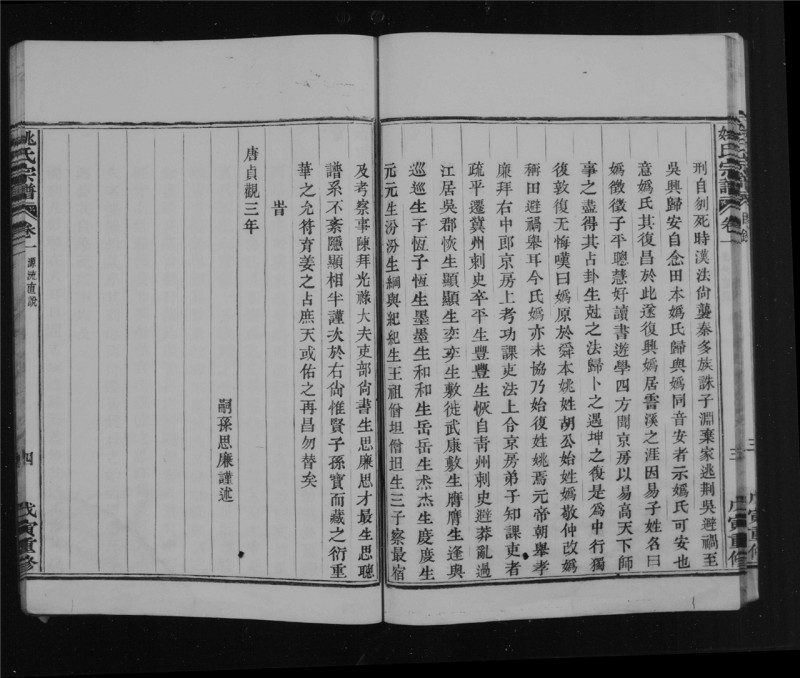 姚氏宗譜
卷一
三
戊寅重修
刑自刎死時漢法尙襲秦多族誅子淵棄家逃荆吳避禍至
吳興歸安自念田本嬀氏歸與嬀同音安者示嬀氏可安也
意嬀氏其復昌於此遂復興嬀居霅溪之涯因易子姓名曰
嬀徵徵子平聰慧好讀書遊學四方聞京房以易高天下師
事之盡得其占卦生尅之法歸卜之遇坤之復是為中行獨
復敦復无悔嘆曰嬀原於舜本姚姓胡公始姓嬀敬仲改嬀
稱田避禍舉耳今氏嬀亦未協乃始復姓姚焉元帝朝舉孝
廉拜右中郎京房上考功課吏法上合京房弟子知課吏者
疏平遷冀州刺史卒平生豐豐生恢自靑州刺史避莽亂過
江居吳郡恢生顯顯生奕奕生敷徙武康敷生膺膺生逢與
巡巡生子恆子恆生墨墨生和和生岳岳生杰杰生慶慶生
元元生汾汾生綱與紀紀生王祖僧坦僧坦生三子察最宿
及考察事陳拜光祿大夫吏部尙書生思廉思才最生思聰
譜系不紊隱顯相半謹次於右尙惟賢子孫寶而藏之衍重
華之允符育姜之占庶天或佑之再昌勿替矣
旹
唐貞觀三年
嗣孫思廉謹述
姚氏宗譜
卷一
源流直說
四
戊寅重修